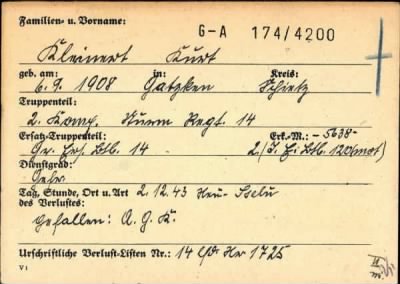 Familien- u. Vorname:
G-A 174/4200
Kleinert Kurt
geb. am: in: Kreis:
6.9.1908 Gatzken
Truppenteil:
2. Komp. Sturm Regt. 14
Ersatz-Truppenteil: Erk.-M.: -5638-
Gr. Ers. Btl. 14 2./J. Ers. Btl.
Dienstgrad:
Gefr.
Tag, Stunde, Ort u. Art 2.12.43
des Verlustes:
Gefallen: A. G. K.
Urschriftliche Verlust-Listen Nr.: 14 lfd Nr 1725
V 1